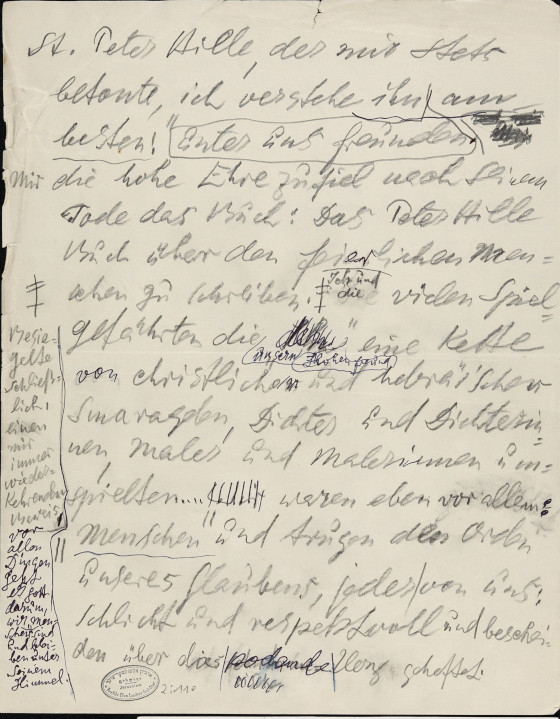 St. Peter Hille, der mir stets
betonte, ich verstehe ihn am
besten!" Unter uns freunden
Mir die hohe Ehre zufiel nach seinem
Tode das Buch: Das Peter Hille
Buch über den feierlichen Men=
schen zu schreiben. ‡ Ich und die vielen Spiel=
gefährten die " eine Kette
unsern
von christlicher und hebräischer
Smaragden, Dichter und Dichterin=
nen, Maler und Malerinnen um=
spielten.... waren eben vor allem:
"Menschen" und trugen den Orden
unseres Glaubens, jeder von uns:
Schlicht und respektvoll und beschei=
den über die
‡
Besie=
gelte
schließ=
lich,
einen
mir
immer
wieder=
kehrenden
Beweis,
vor
allen
Dingen
geht
es Gott
darum,
wir Men=
schen sind
und blei=
ben unter
seinem
Himmel.
2:110